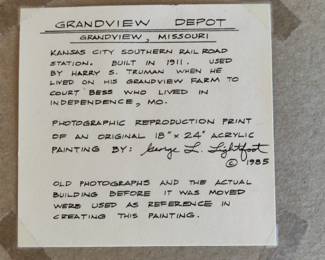 GRANDVIEW DEPOT
GRANDVIEW, MISSOURI
KANSAS CITY SOUTHERN RAIL ROAD
STATION. BUILT IN 1911. USED
BY HARRY S. TRUMAN WHEN HE
LIVED ON HIS GRANDVIEW FARM TO
COURT BESS WHO LIVED IN
INDEPENDENCE, MO.
PHOTOGRAPHIC REPRODUCTION PRINT
OF AN ORIGINAL 18" x 24" ACRYLIC
PAINTING BY: George L. Lightfoot
© 1985
OLD PHOTOGRAPHS AND THE ACTUAL
BUILDING BEFORE IT WAS MOVED
WERE USED AS REFERENCE IN
CREATING THIS PAINTING.